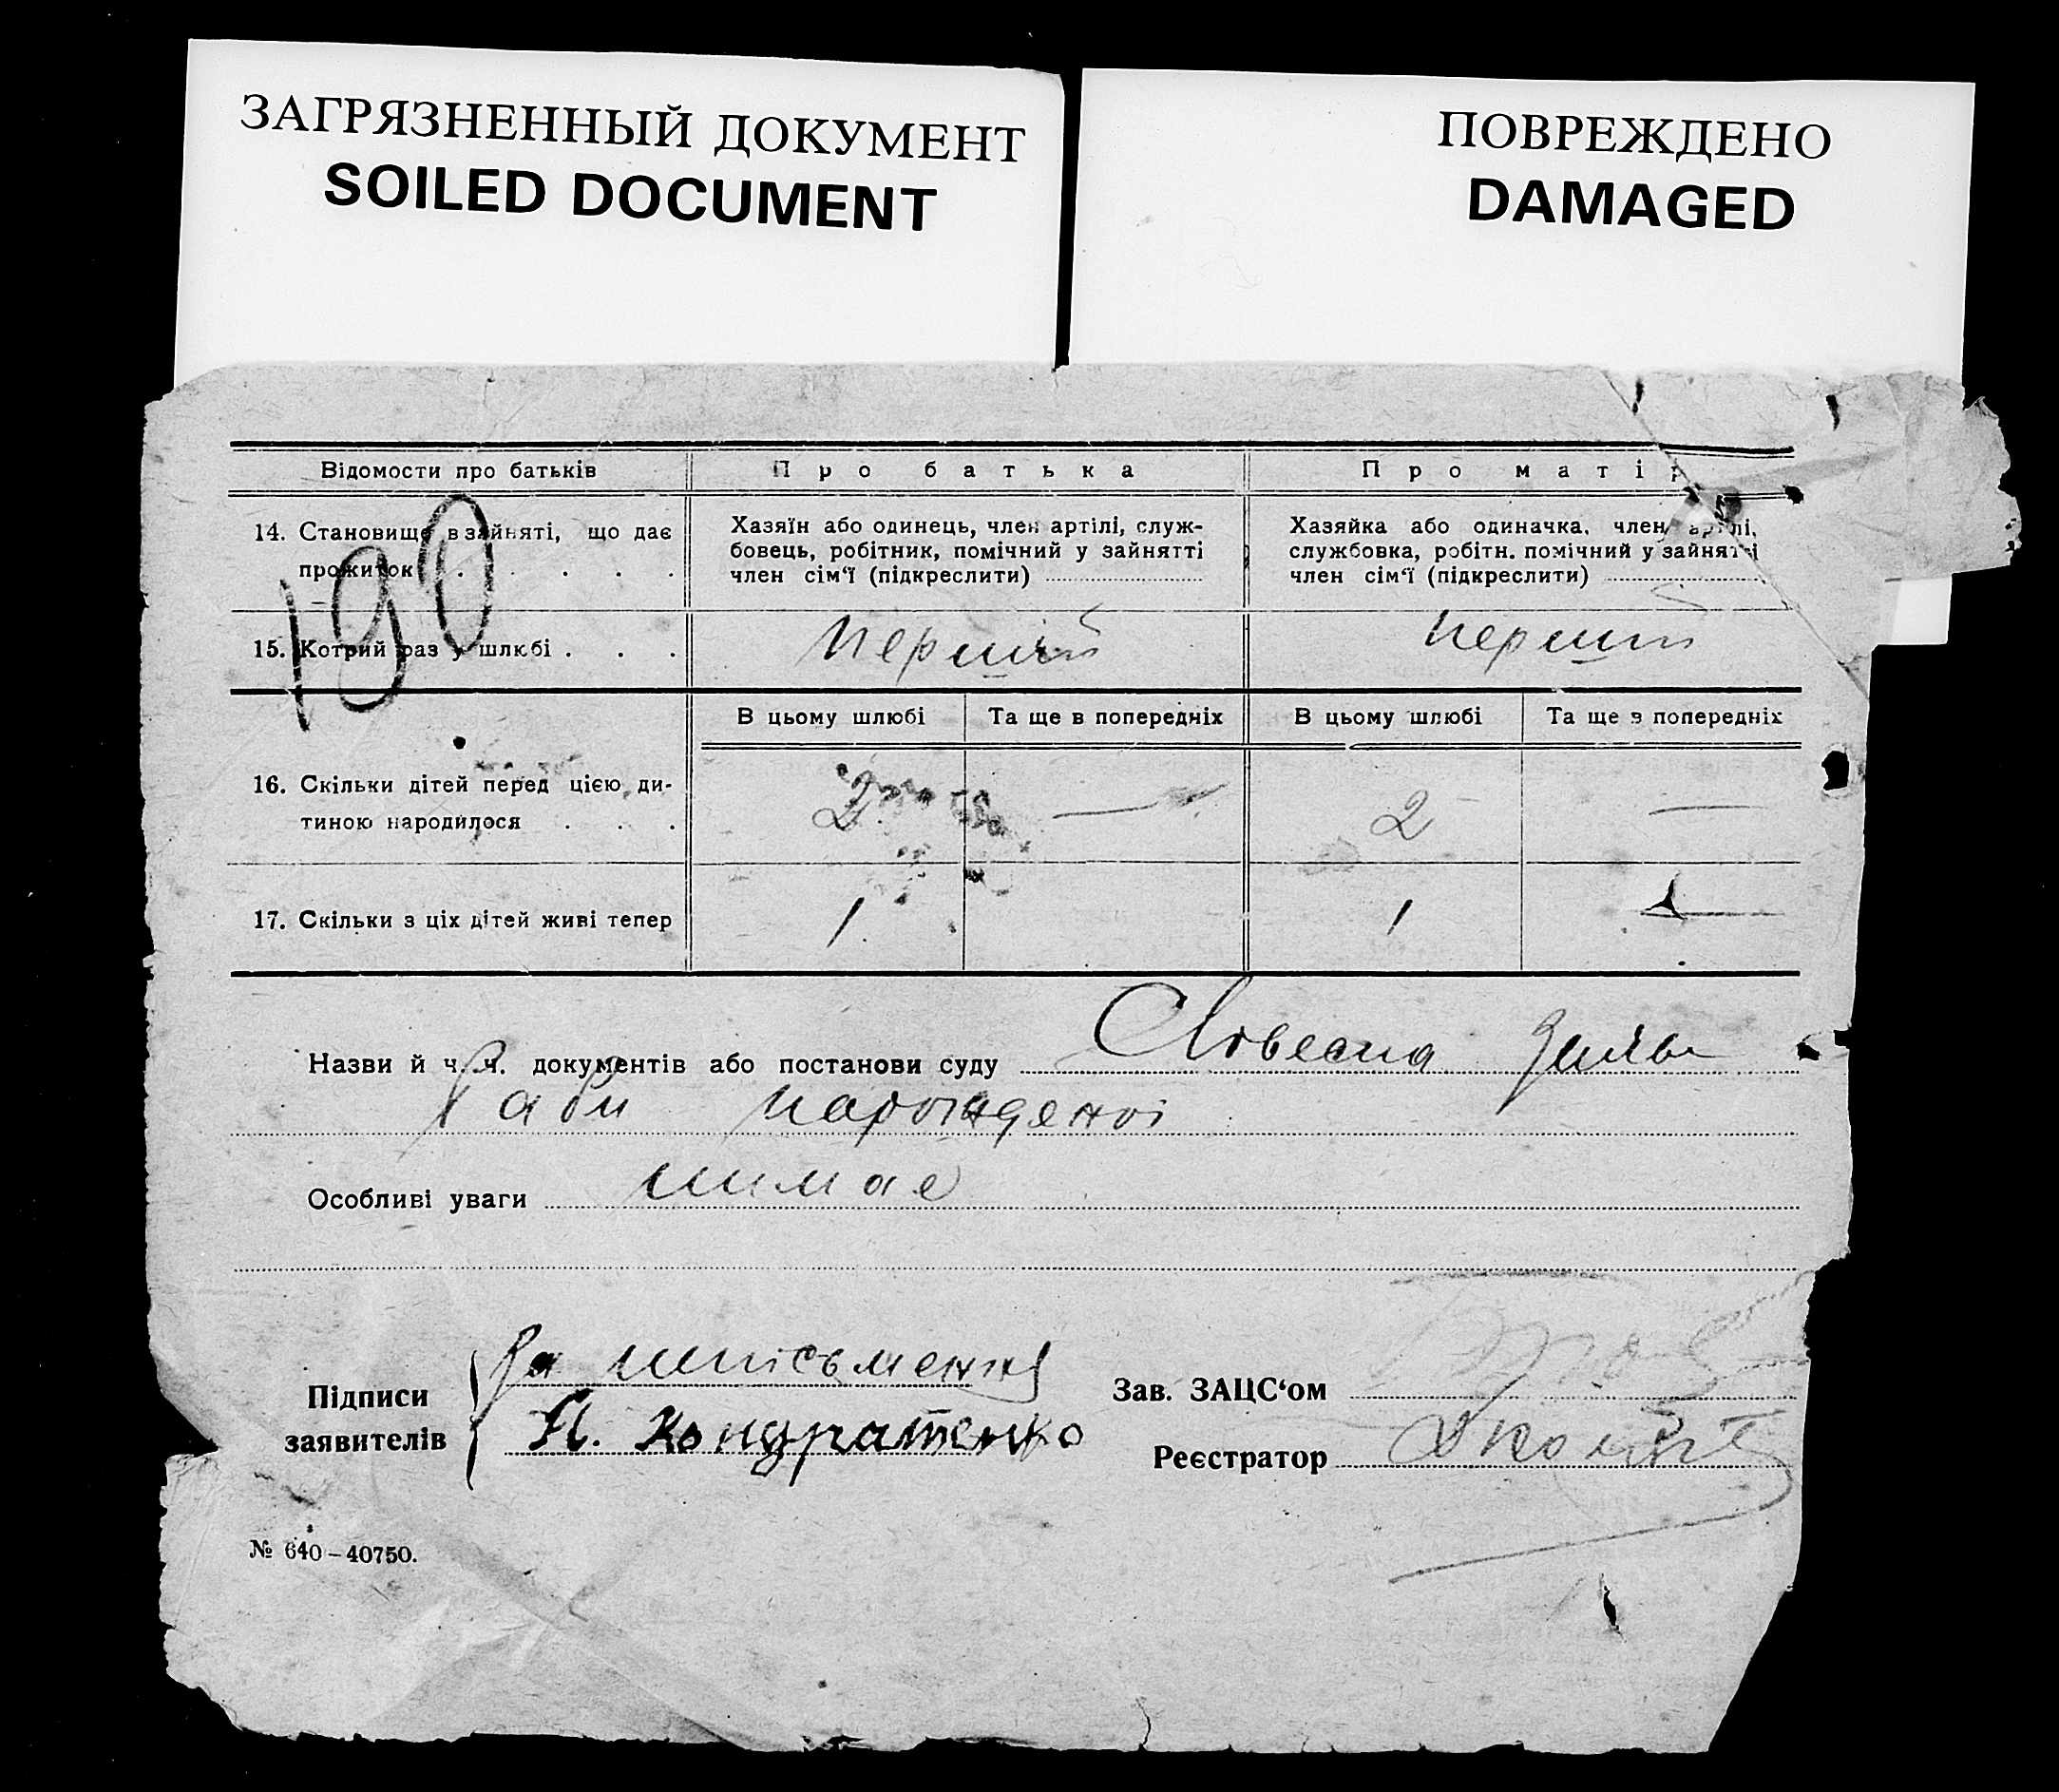 ЗАГРЯЗНЕННЫЙ ДОКУМЕНТ
SOILED DOCUMENT
ПОВРЕЖДЕНО
DAMAGED
Відомости про батьків
Про батька
Про матір
190
14. Становище в зайняті, що дає
прожиток
Хазяїн або одинець, член артілі, служ-
бовець, робітник, помічний у зайнятті
член сім‘ї (підкреслити)
Хазяйка або одиначка, член артілі,
службовка, робітн. помічний у зайнятті
член сім‘ї (підкреслити)
15. Котрий раз у шлюбі
перший
перший
В цьому шлюбі
Та ще в попередніх
В цьому шлюбі
Та ще в попередніх
16. Скільки дітей перед цією ди-
тиною народилося
2
—
2
—
17. Скільки з ціх дітей живі тепер
1
1
—
Назви й ч. ч. документів або постанови суду Словесна
Особливі уваги
Підписи
заявителів
За
Я. Кондратенко
Зав. ЗАЦС‘ом
Реєстратор
№ 640–40750.